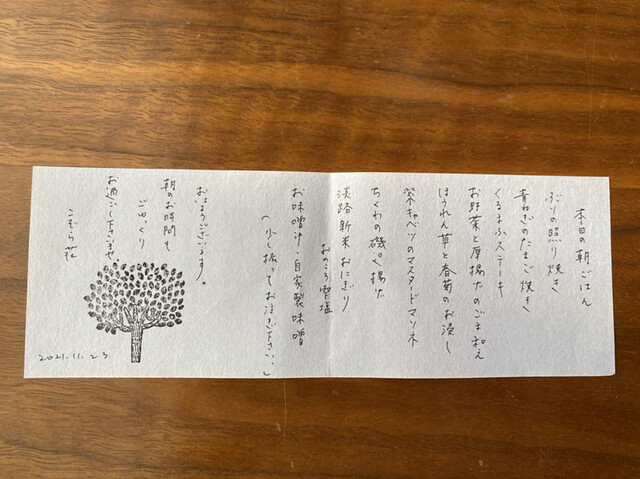 本日の朝ごはん
ぶりの照り焼き
青ねぎのたまご焼き
くるまふステーキ
お野菜と厚揚げのごま和え
ほうれん草と春菊のお浸し
紫キャベツのマスタードマリネ
ちくわの磯辺揚げ
淡路新米おにぎり
おのころ雫塩
お味噌汁・自家製味噌
(少し振ってお注ぎ下さい。)
おはようございます。
朝のお時間も
ごゆっくり
お過ごし下さいませ。
こぞら荘
2021.11.23